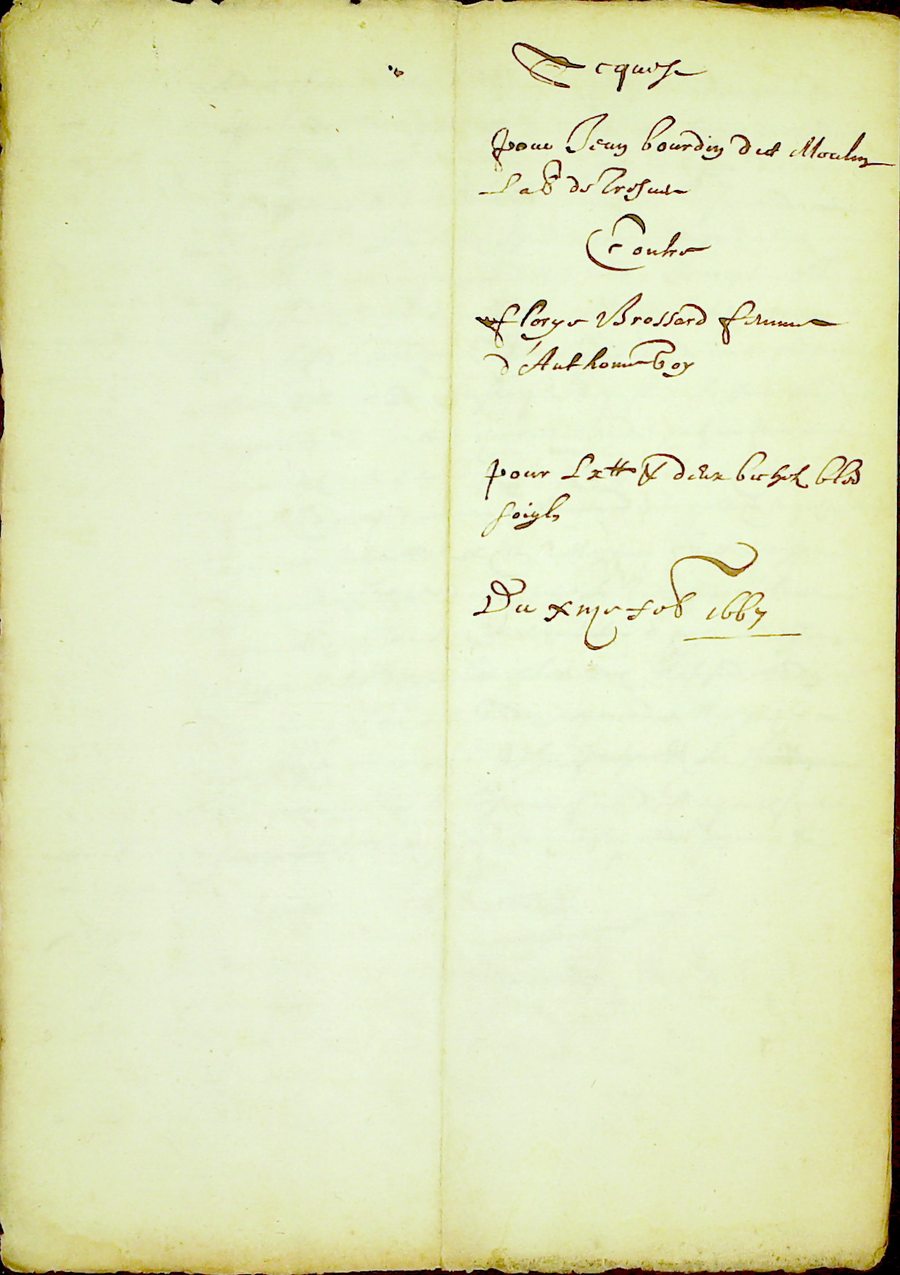 Acquest
pour Jean bourdin dict Moulin
Lab de
Contre
florye Brossard femme
d'Anthoine boy
pour Lx tt & deux bichetz bled
soigle
Du x me feb 1667